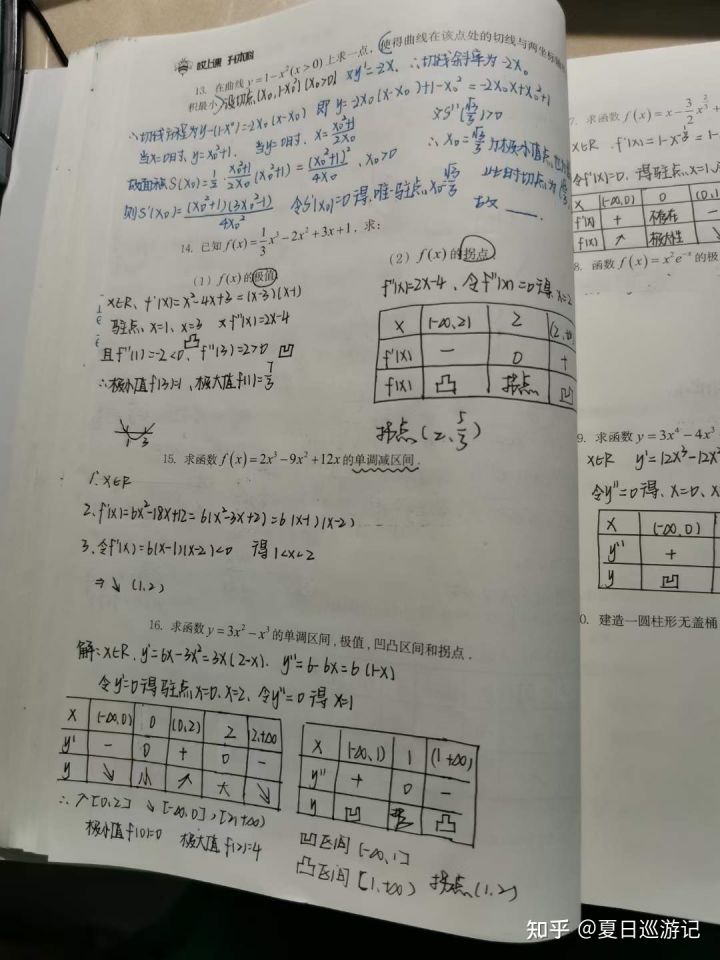 校上课 升本科
13. 在曲线 y=1-x²(x>0) 上求一点，使得曲线在该点处的切线与两坐标轴
积最小.
设切点(x₀,1-x₀²)(x₀>0) ∵y'=-2x. ∴切线斜率为-2x₀
∴切线方程为y-(1-x₀²)=-2x₀(x-x₀) 即 y=-2x₀(x-x₀)+1-x₀²=-2x₀x+x₀²+1
当x=0时, y=x₀²+1. 当y=0时, x=(x₀²+1)/2x₀
又S''(√3/3)>0
故面积S(x₀)=1/2·(x₀²+1)/2x₀(x₀²+1)=(x₀²+1)²/4x₀, x₀>0
∴x₀=√3/3为极小值点
则S'(x₀)=(x₀²+1)(3x₀²-1)/4x₀² 令S'(x₀)=0得,唯一驻点x₀=√3/3
此时切点为
故
14. 已知 f(x)=1/3x³-2x²+3x+1, 求:
(1) f(x) 的极值
x∈R, f'(x)=x²-4x+3=(x-3)(x-1)
驻点, x=1, x=3 又f''(x)=2x-4
且f''(1)=-2<0 凸, f''(3)=2>0 凹
∴极小值f(3)=1, 极大值f(1)=7/3
1 3
(2) f(x) 的拐点.
f''(x)=2x-4, 令f''(x)=0得x=2
x (-∞,2) 2 (2,+∞
f''(x) - 0 +
f(x) 凸 拐点 凹
拐点(2, 5/3)
15. 求函数 f(x)=2x³-9x²+12x 的单调减区间.
1. x∈R
2. f'(x)=6x²-18x+12=6(x²-3x+2)=6(x-1)(x-2)
3. 令f'(x)=6(x-1)(x-2)<0 得1<x<2
⇒↘ (1,2)
16. 求函数 y=3x²-x³ 的单调区间,极值,凹凸区间和拐点.
解: x∈R, y'=6x-3x²=3x(2-x). y''=6-6x=6(1-x)
令y'=0得驻点x=0,x=2, 令y''=0得x=1
x (-∞,0) 0 (0,2) 2 (2,+∞
y' - 0 + 0 -
y ↘ 小 ↗ 大 ↘
∴↗[0,2] ↘(-∞,0],[2,+∞)
极小值f(0)=0 极大值f(2)=4
x (-∞,1) 1 (1,+∞)
y'' + 0 -
y 凹 拐 凸
凹区间 (-∞,1]
凸区间 [1,+∞) 拐点(1,2)
7. 求函数 f(x)=x-3/2x^(2/3)+
x∈R. f'(x)=1-x^(-1/3)=1-
令f'(x)=0, 得驻点x=1,
x (-∞,0) 0 (0,1
f'(x) + 不存在 -
f(x) ↗ 极大性 ↘
8. 函数 f(x)=x²e⁻ˣ 的极
9. 求函数 y=3x⁴-4x³
x∈R y'=12x³-12x²
令y''=0得, x=0, x
x (-∞,0)
y'' +
y 凹
0. 建造一圆柱形无盖桶
知乎 @夏日巡游记